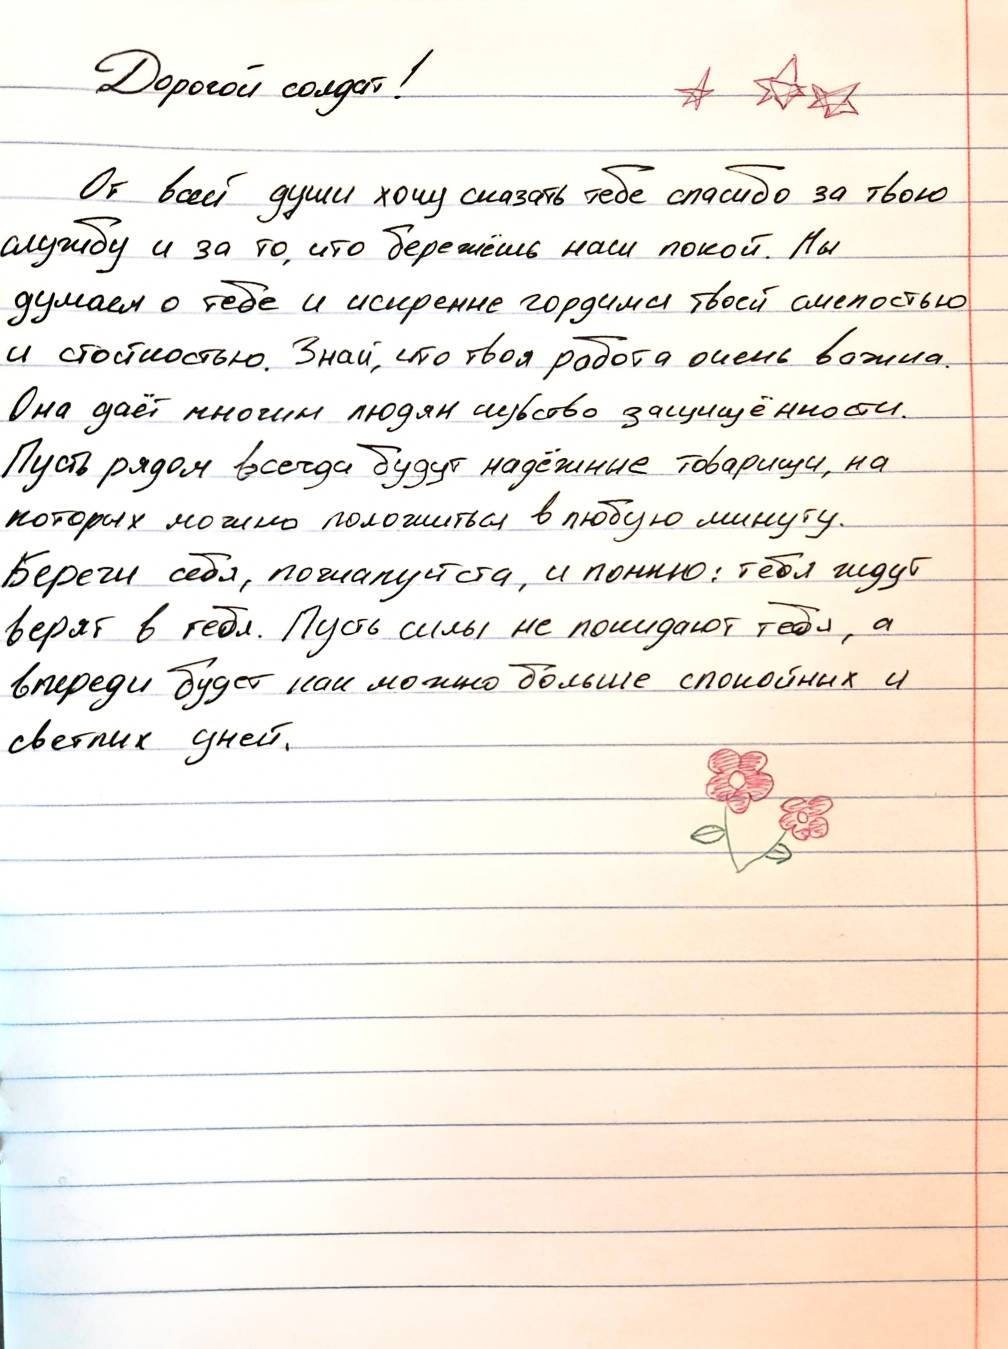 Дорогой солдат!
От всей души хочу сказать тебе спасибо за твою
службу и за то, что бережёшь наш покой. Мы
думаем о тебе и искренне гордимся твоей смелостью
и стойкостью. Знай, что твоя работа очень важна.
Она даёт многим людям чувство защищённости.
Пусть рядом всегда будут надёжные товарищи, на
которых можно положиться в любую минуту.
Береги себя, пожалуйста, и помню: тебя ждут
верят в тебя. Пусть силы не покидают тебя, а
впереди будет как можно больше спокойных и
светлых дней.